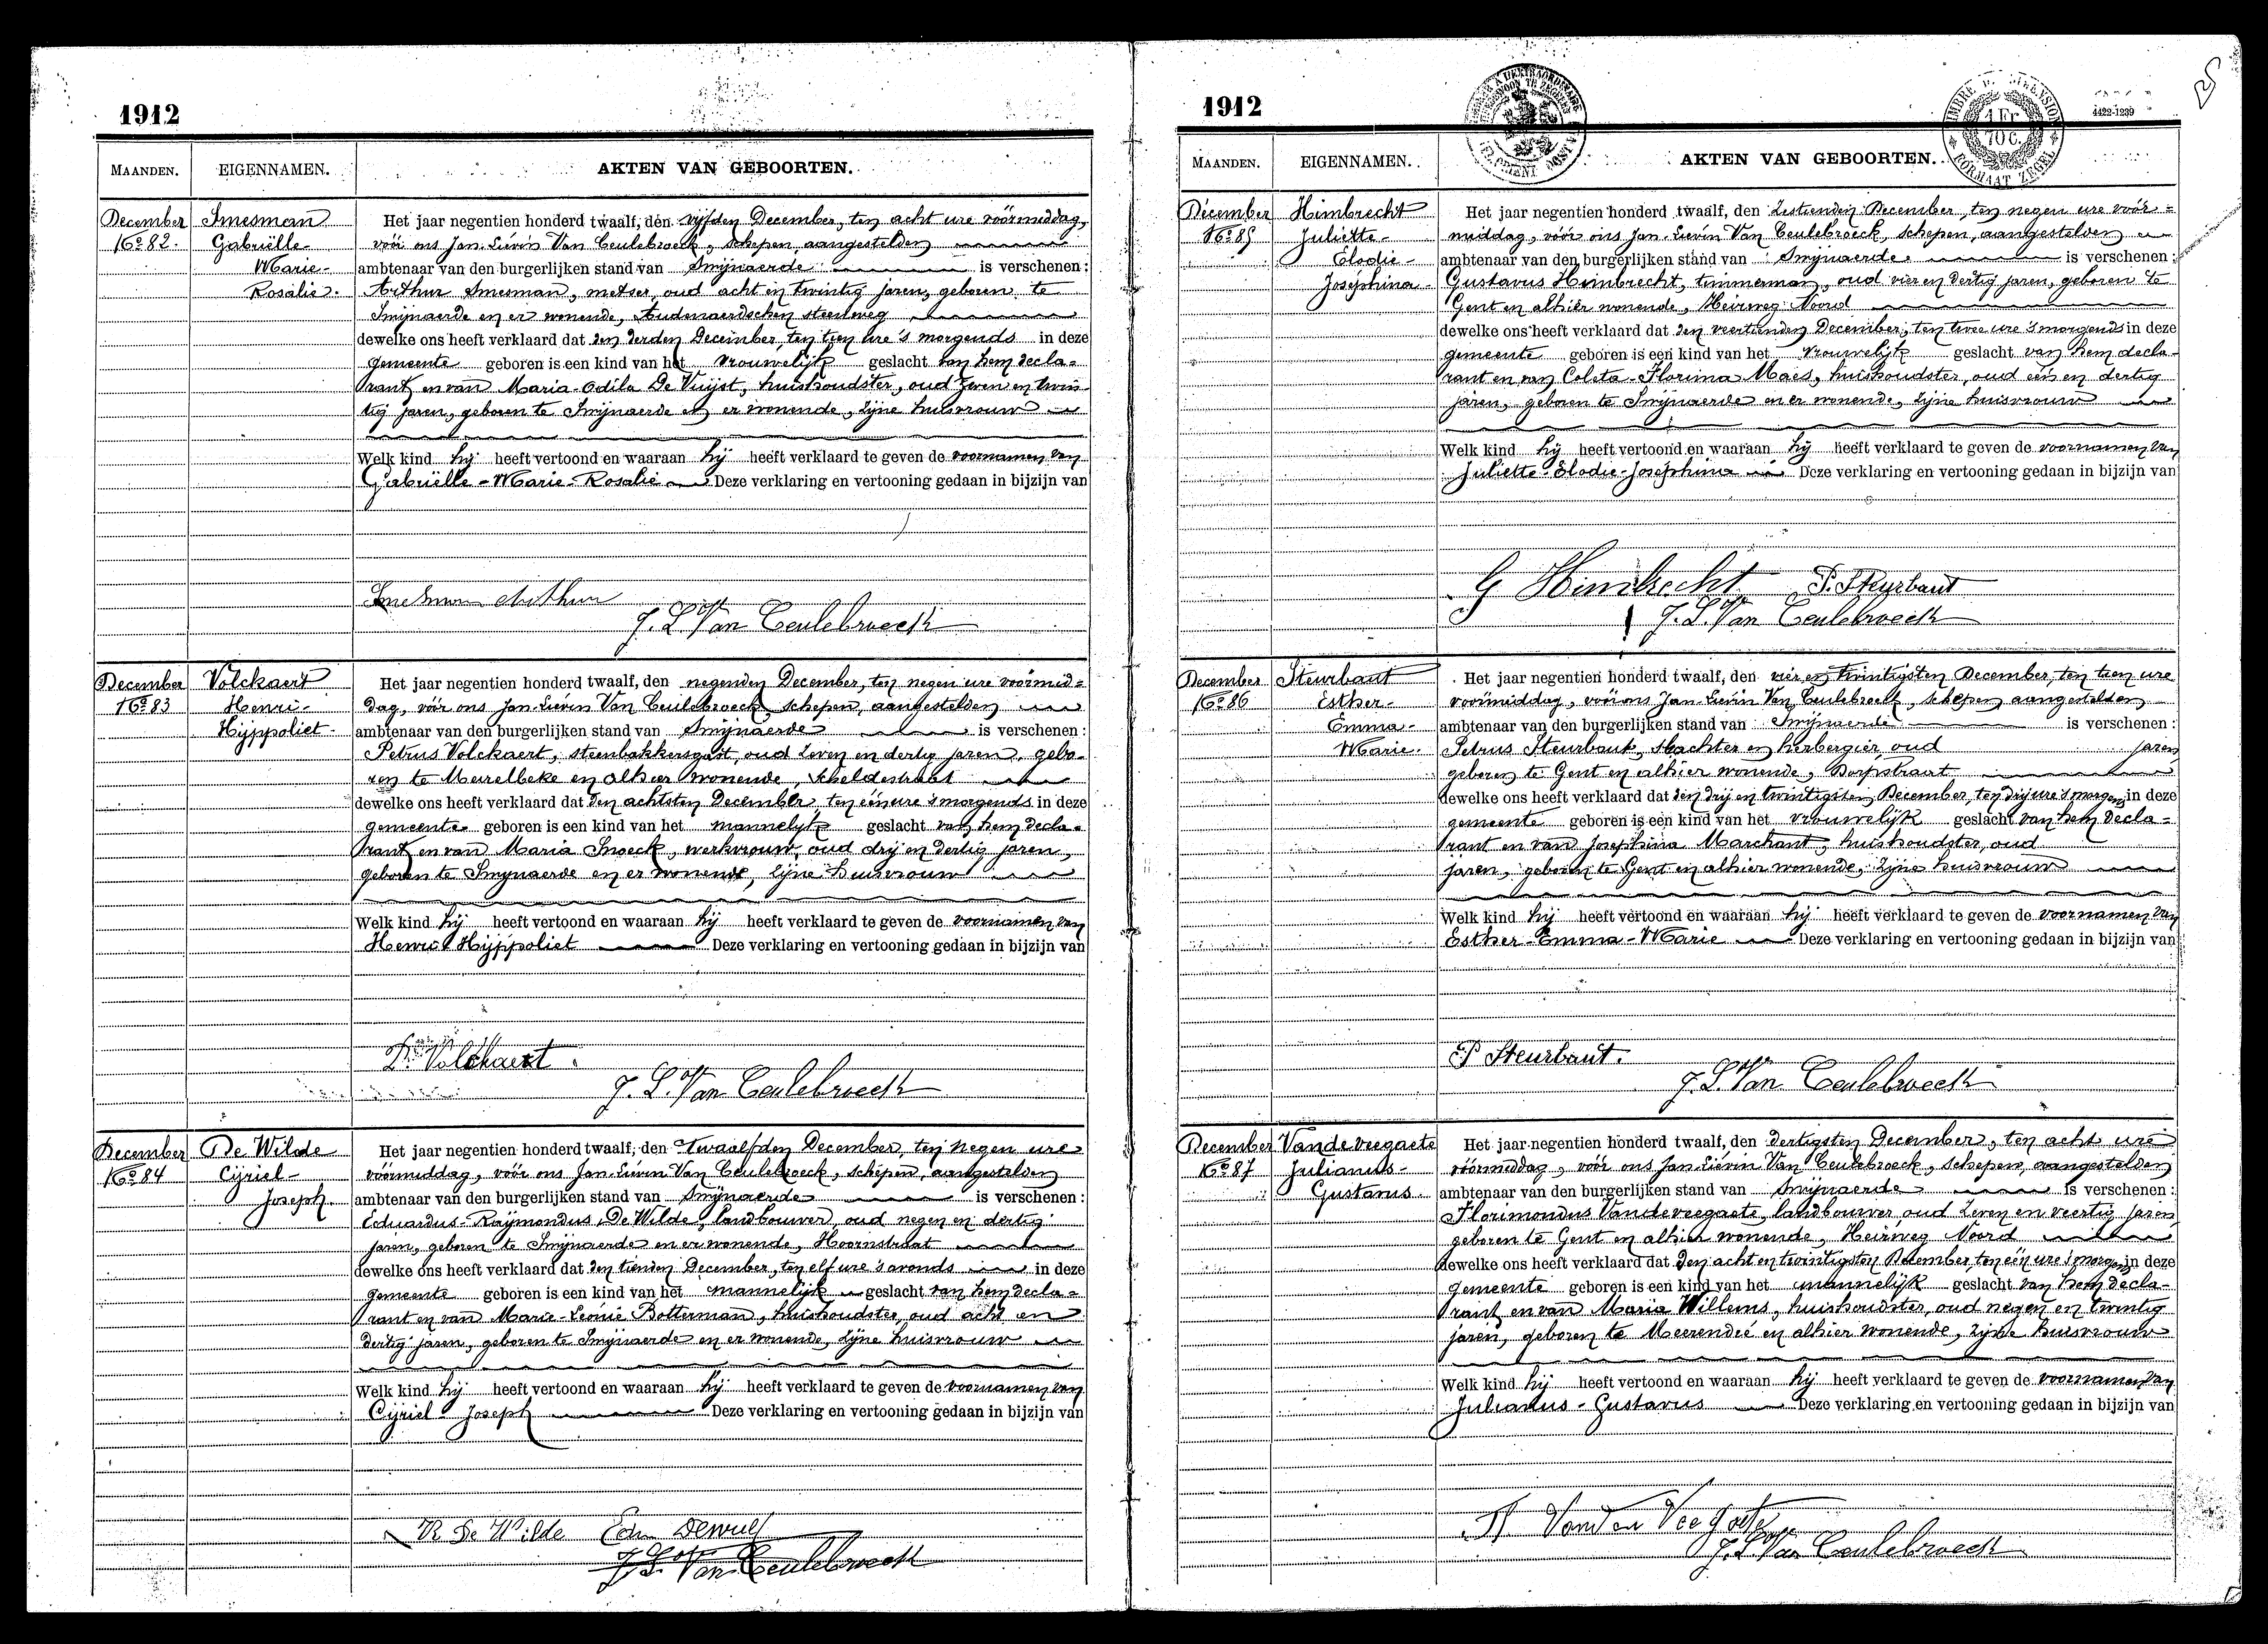 1912
MAANDEN. EIGENNAMEN. AKTEN VAN GEBOORTEN.
December Smesman
No 82. Gabriëlle-
Marie-
Rosalie.
Het jaar negentien honderd twaalf, den vijfden December, ten acht ure vóórmiddag,
vóór ons Jan-Liévin Van Ceulebroeck, schepen, aangestelden
ambtenaar van den burgerlijken stand van Smijnaerde is verschenen:
Arthur Smesman, metser, oud acht en twintig jaren, geboren te
Smijnaerde en er wonende, Audenaerdschen steenweg
dewelke ons heeft verklaard dat den derden December, ten tien ure 's morgends in deze
gemeente geboren is een kind van het vrouwelijk geslacht van hem decla-
rant en van Maria-Odila De Vuijst, huishoudster, oud zeven en twin-
tig jaren, geboren te Smijnaerde en er wonende, zijne huisvrouw
Welk kind hij heeft vertoond en waaraan hij heeft verklaard te geven de voornamen van
Gabriëlle-Marie-Rosalie Deze verklaring en vertooning gedaan in bijzijn van
Smesman Arthur
J. L. Van Ceulebroeck
December Volckaert
No 83 Henri-
Hijppoliet.
Het jaar negentien honderd twaalf, den negenden December, ten negen ure vóórmid-
dag, vóór ons Jan-Liévin Van Ceulebroeck, schepen, aangestelden
ambtenaar van den burgerlijken stand van Smijnaerde is verschenen:
Petrus Volckaert, steenbakkersgast, oud zeven en dertig jaren, gebo-
ren te Meirelbeke en alhier wonende, Scheldestraat
dewelke ons heeft verklaard dat den achtsten December, ten één ure 's morgends in deze
gemeente geboren is een kind van het mannelijk geslacht van hem decla-
rant en van Maria Snoeck, werkvrouw, oud drij en dertig jaren,
geboren te Smijnaerde en er wonende, zijne huisvrouw
Welk kind hij heeft vertoond en waaraan hij heeft verklaard te geven de voornamen van
Henri-Hijppoliet Deze verklaring en vertooning gedaan in bijzijn van
P. Volckaert.
J. L. Van Ceulebroeck
December De Wilde
No 84 Cijriel-
Joseph.
Het jaar negentien honderd twaalf, den twaalfden December, ten negen ure
vóórmiddag, vóór ons Jan-Liévin Van Ceulebroeck, schepen, aangestelden
ambtenaar van den burgerlijken stand van Smijnaerde is verschenen:
Eduardus-Raijmondus De Wilde, landbouwer, oud negen en dertig
jaren, geboren te Smijnaerde en er wonende, Hoornstraat
dewelke ons heeft verklaard dat den tienden December, ten elf ure 's avonds in deze
gemeente geboren is een kind van het mannelijk geslacht van hem decla-
rant en van Marie-Leonie Botterman, huishoudster, oud acht en
dertig jaren, geboren te Smijnaerde en er wonende, zijne huisvrouw
Welk kind hij heeft vertoond en waaraan hij heeft verklaard te geven de voornamen van
Cijriel-Joseph Deze verklaring en vertooning gedaan in bijzijn van
R De Wilde
J. L. Van Ceulebroeck
1912
1 Fr
70 C.
4422-1239
MAANDEN. EIGENNAMEN. AKTEN VAN GEBOORTEN.
December Himbrecht
No 85 Juliette-
Elodie-
Joséphina.
Het jaar negentien honderd twaalf, den zestienden December, ten negen ure vóór-
middag, vóór ons Jan-Liévin Van Ceulebroeck, schepen, aangestelden
ambtenaar van den burgerlijken stand van Smijnaerde is verschenen:
Gustavus Himbrecht, timmerman, oud vier en dertig jaren, geboren te
Gent en alhier wonende, Heirweg Noord
dewelke ons heeft verklaard dat den veertienden December, ten twee ure 's morgends in deze
gemeente geboren is een kind van het vrouwelijk geslacht van hem decla-
rant en van Coleta-Florina Maes, huishoudster, oud één en dertig
jaren, geboren te Smijnaerde en er wonende, zijne huisvrouw
Welk kind hij heeft vertoond en waaraan hij heeft verklaard te geven de voornamen van
Juliette-Elodie-Josephina Deze verklaring en vertooning gedaan in bijzijn van
G Himbrecht P. Steurbaut
J. L. Van Ceulebroeck
December Steurbaut
No 86 Esther-
Emma-
Marie.
Het jaar negentien honderd twaalf, den vier en twintigsten December, ten tien ure
voormiddag, vóór ons Jan-Liévin Van Ceulebroeck, schepen, aangestelden
ambtenaar van den burgerlijken stand van Smijnaerde is verschenen:
Petrus Steurbaut, slachter en herbergier, oud jaren
geboren te Gent en alhier wonende, Dorpstraat
dewelke ons heeft verklaard dat den drij en twintigsten December, ten drij ure 's morgens in deze
gemeente geboren is een kind van het vrouwelijk geslacht van hem decla-
rant en van Josephina Marchant, huishoudster, oud
jaren, geboren te Gent en alhier wonende, zijne huisvrouw
Welk kind hij heeft vertoond en waaraan hij heeft verklaard te geven de voornamen van
Esther-Emma-Marie Deze verklaring en vertooning gedaan in bijzijn van
P Steurbaut.
J. L. Van Ceulebroeck
December Vandeveegaete
No 87 Julianus-
Gustavus.
Het jaar negentien honderd twaalf, den dertigsten December, ten acht ure
vóórmiddag, vóór ons Jan-Liévin Van Ceulebroeck, schepen, aangestelden
ambtenaar van den burgerlijken stand van Smijnaerde is verschenen:
Florimondus Vandeveegaete, landbouwer oud zeven en veertig jaren
geboren te Gent en alhier wonende, Heirweg Noord
dewelke ons heeft verklaard dat den acht en twintigsten December, ten één ure 's morgens in deze
gemeente geboren is een kind van het mannelijk geslacht van hem decla-
rant en van Maria Willems, huishoudster, oud negen en twintig
jaren, geboren te Meerendré en alhier wonende, zijne huisvrouw
Welk kind hij heeft vertoond en waaraan hij heeft verklaard te geven de voornamen van
Julianus-Gustavus Deze verklaring en vertooning gedaan in bijzijn van
Vanden Veegate
J. L. Van Ceulebroeck